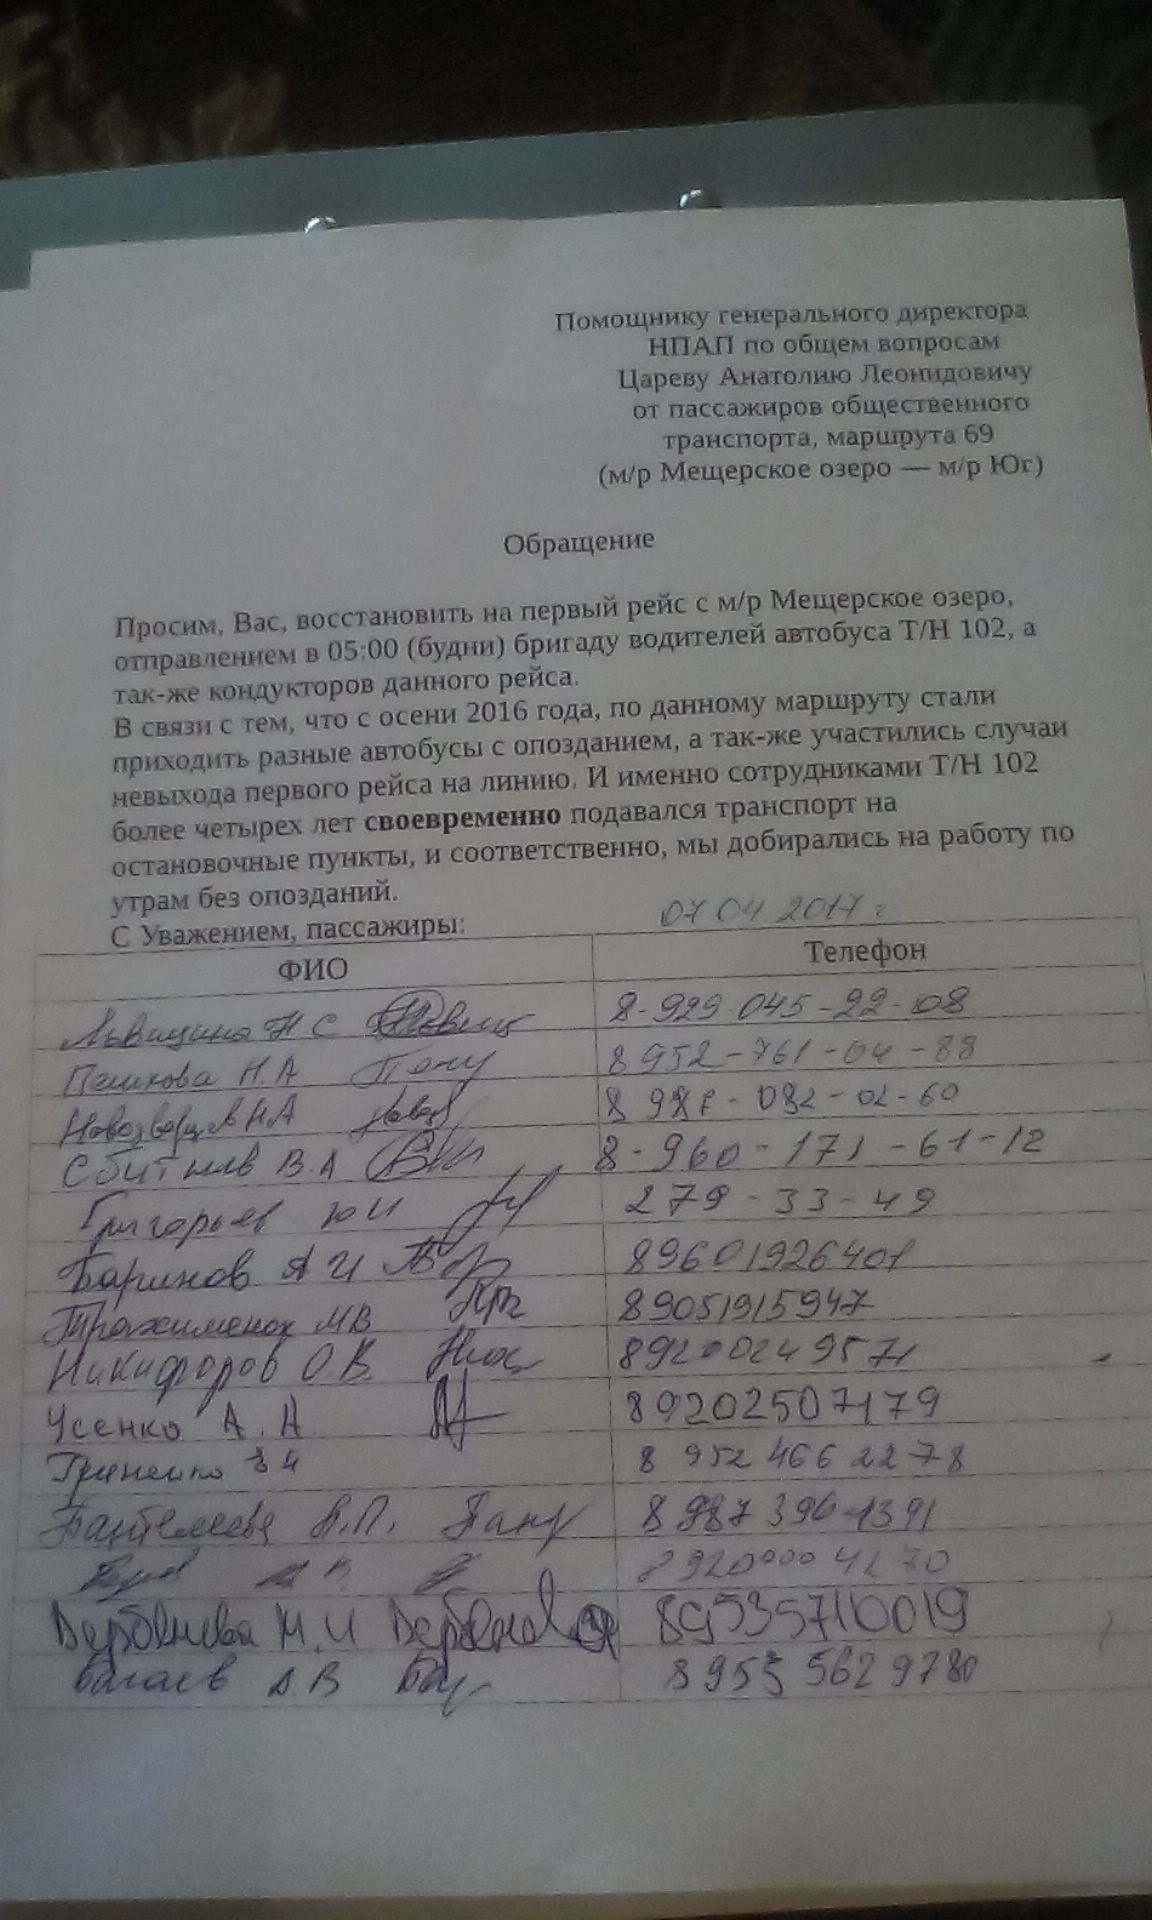 Помощнику генерального директора
НПАП по общем вопросам
Цареву Анатолию Леонидовичу
от пассажиров общественного
транспорта, маршрута 69
(м/р Мещерское озеро — м/р Юг)
Обращение
Просим, Вас, восстановить на первый рейс с м/р Мещерское озеро,
отправлением в 05:00 (будни) бригаду водителей автобуса Т/Н 102, а
так-же кондукторов данного рейса.
В связи с тем, что с осени 2016 года, по данному маршруту стали
приходить разные автобусы с опозданием, а так-же участились случаи
невыхода первого рейса на линию. И именно сотрудниками Т/Н 102
более четырех лет своевременно подавался транспорт на
остановочные пункты, и соответственно, мы добирались на работу по
утрам без опозданий.
С Уважением, пассажиры: 07 04 2017 г
ФИО Телефон
Н С 8-929-045-22-08
Пешкова Н.А 8 952-761-04-88
Н А
Сбитнев В.А 8-960-171-61-12
Григорьев Ю И 279-33-49
Баринов А И 89601926401
Трахименок М В 89051915947
Никифоров О.В. 89200249571
Усенко А. Н 89202507179
Гриненко 8 952 466 22 78
Пантелеева 8 987 396 1391
8 920 000 42 70
М. И 89535710019
Багаев В 8 953 562 9780